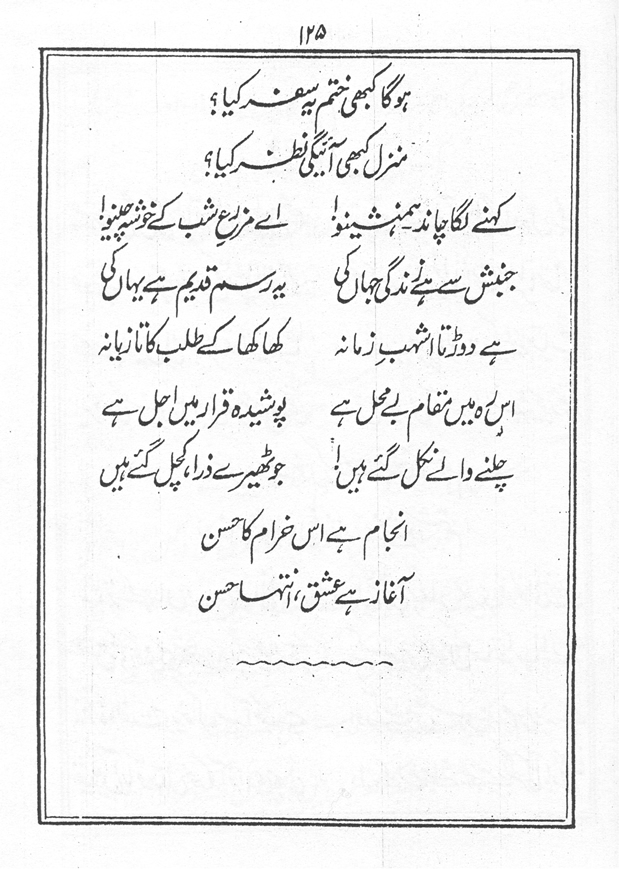 ۱۲۵
ہوگا کبھی ختم یہ سفر کیا؟
منزل کبھی آئیگی نظر کیا؟
کہنے لگا چاند۔ ہمنشینو! اے مزرعِ شب کے خوشہ چینو!
جنبش سے ہے زندگی جہاں کی یہ رسم قدیم ہے یہاں کی
ہے دوڑتا اشہبِ زمانہ کھا کھا کے طلب کا تازیانہ
اس رہ میں مقام بے محل ہے پوشیدہ قرار میں اجل ہے
چلنے والے نکل گئے ہیں! جو ٹھیرے ذرا، کچل گئے ہیں
انجام ہے اس خرام کا حسن
آغاز ہے عشق، انتہا حسن